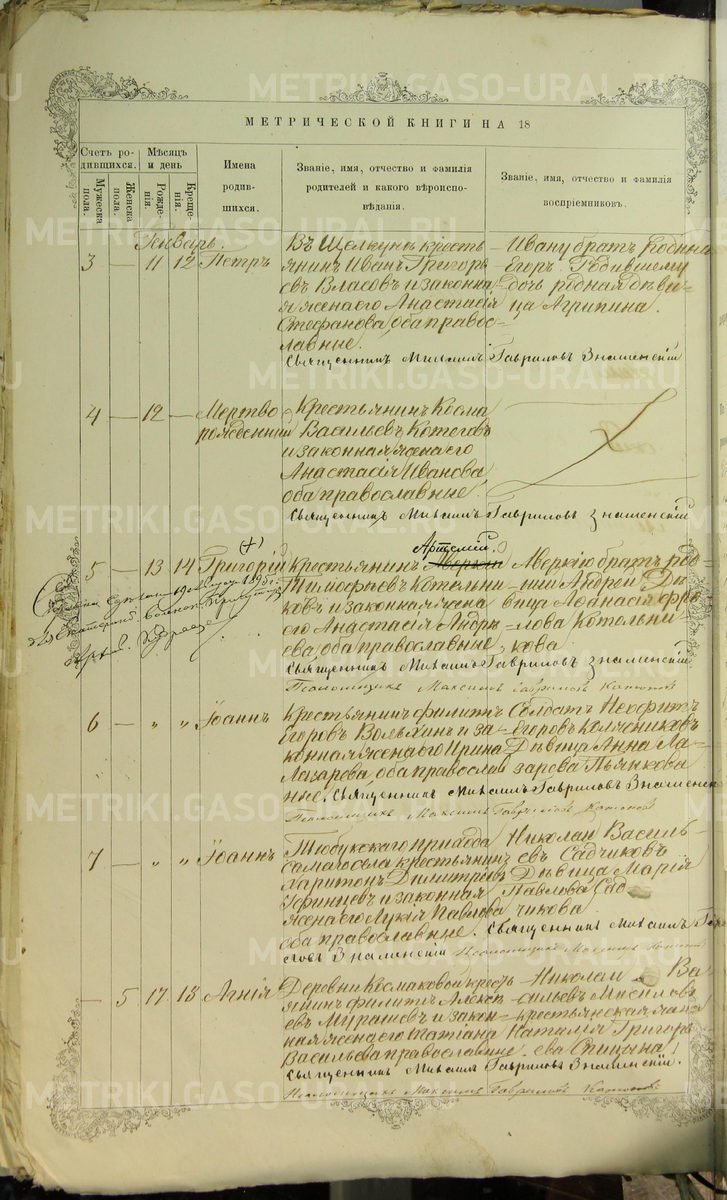 МЕТРИЧЕСКОЙ КНИГИ НА 18
Счетъ родившихся.
Мужеска пола.
Женска пола.
Мѣсяцъ и день
Рожденія.
Крещенія.
Имена родившихся.
Званіе, имя, отчество и фамилія родителей и какого вѣроисповѣданія.
Званіе, имя, отчество и фамилія воспріемниковъ.
Генварь.
3 — 11 12 Петръ
Въ Щелкунъ кресть-
янинъ Иванъ Григорь
евъ Власовъ и законна
я жена его Анастасія
Стефанова, оба правос-
лавные.
Ивану братъ родный
Егоръ. Родившему
дочь родная дѣви-
ца Агрипина.
Священникъ Михаилъ Гавриловъ Знаменскій
4 — 12 — Мертво
рожденный
Крестьянинъ Косма
Васильевъ Котеговъ
и законная жена его
Анастасія Иванова,
оба православные.
Священникъ Михаилъ Гавриловъ Знаменскій
5 — 13 14 Григорій
(+)
Артемій
Крестьянинъ Аверкій
Тимофѣевъ Котельни-
ковъ и законная жена
его Анастасія Андре-
ева, оба православные
Аверкію братъ род-
ный Андрей Дѣ-
вица Афанасія
лова Котельни-
кова.
Священникъ Михаилъ Гавриловъ Знаменскій
Псаломщикъ Максимъ Гавриловъ
6 — " " Іоаннъ
Крестьянинъ Филиппъ
Егоровъ Волыхинъ и за-
конная жена его Ирина
Лазарева, оба православ
ные.
Солдатъ Неофитъ
Егоровъ Колчениковъ
Дѣвица Анна Ла-
зарова Пьянкова
Священникъ Михаилъ Гавриловъ Знаменскій
Псаломщикъ Максимъ Гавриловъ
7 — " " Іоаннъ
Тюбукскаго прихода
самаго села крестьянинъ
Харитонъ Димитріевъ
Уфинцевъ и законная
жена его Лукія Павлова
оба православные.
Николай Василь-
евъ Садчиковъ
Дѣвица Марія
Павлова Сад
чикова
Священникъ Михаилъ Гаври
ловъ Знаменскій Псаломщикъ Максимъ
— 5 17 18 Агнія
Деревни Космаковой кресть-
янинъ Филиппъ Алексѣ-
евъ Мурашевъ и закон-
ная жена его Татіана
Васильева православные.
Николай Ва
сильевъ
крестьянская жена
Наталія Григорь
ева Спицына
Священникъ Михаилъ Гавриловъ Знаменскій.
Псаломщикъ Максимъ Гавриловъ
METRIKI.GASO-URAL.RU